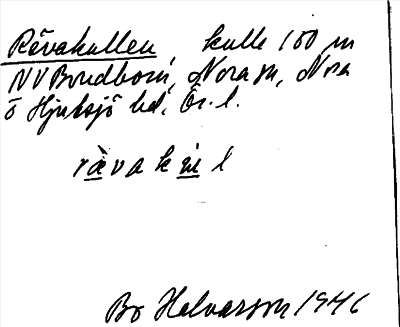 Rävakullen, kulle 100 m
NV Bondborn, Nora sn, Nora
o Hjulsjö bd, Ör. l.
rävakul
Bo Halvarson 1946